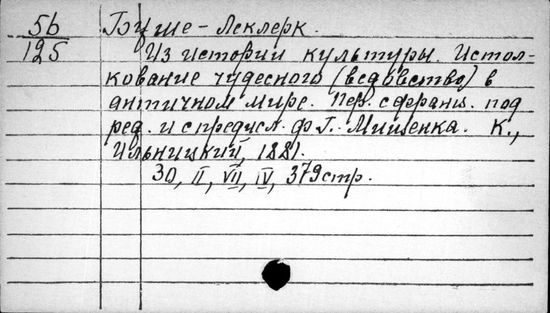 5б Буше-Леклерк.
125 Из истории культуры. Истол-
кование чудесного (ведовство) в
античном мире. Пер. с франц. под
ред. и с предисл. Ф.Г. Мищенка. К.,
Ильницкий, 1881.
30, II, VII, IV, 379 стр.